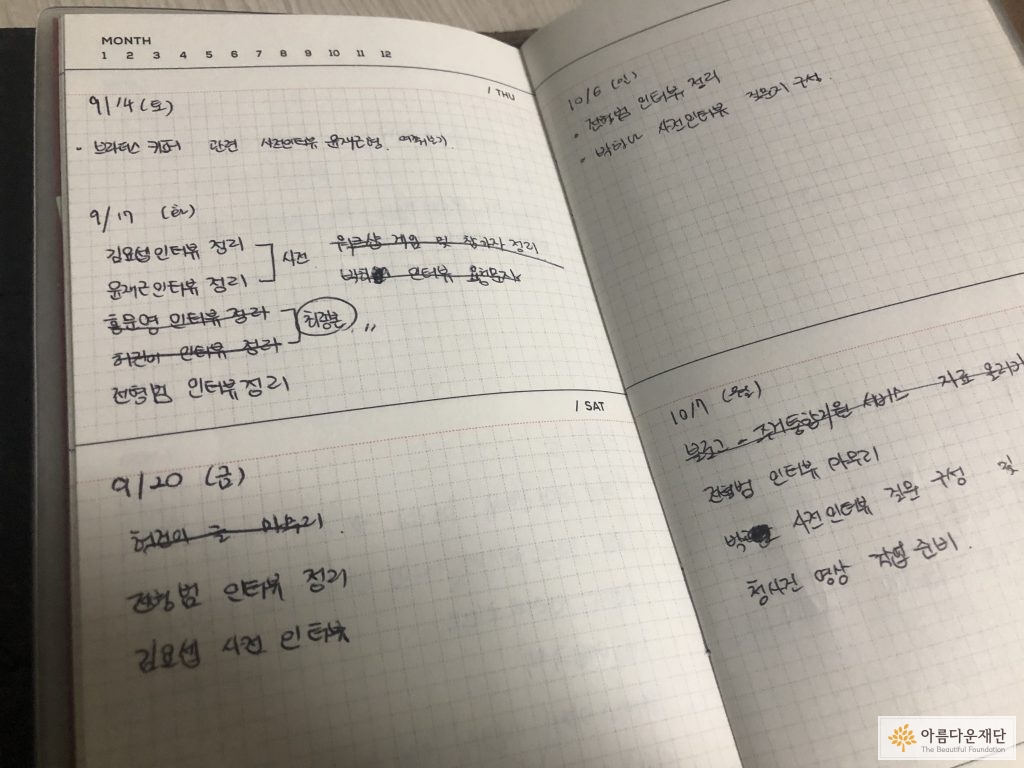 MONTH
1 2 3 4 5 6 7 8 9 10 11 12
/ THU
9/14 (토)
· 브라더스 키퍼 관련 사전인터뷰 윤재근형
9/17 (화)
김요셉 인터뷰 정리
윤재근 인터뷰 정리
사전
홍문영 인터뷰 정리
허진이 인터뷰 정리
최종본
전형범 인터뷰 정리
워크샵 게임 및 참가자 정리
인터뷰 요청문자
/ SAT
9/20 (금)
허진이 글 마무리
전형범 인터뷰 정리
김요셉 사전 인터뷰
10/6 (일)
· 전형범 인터뷰 정리
· 사전인터뷰 질문지 구성
10/7 (월)
블로그 - 주거통합지원 서비스 자료 올리기
전형범 인터뷰 마무리
사전인터뷰 질문 구성 및
청사진 영상 작업 준비
아름다운재단
The Beautiful Foundation